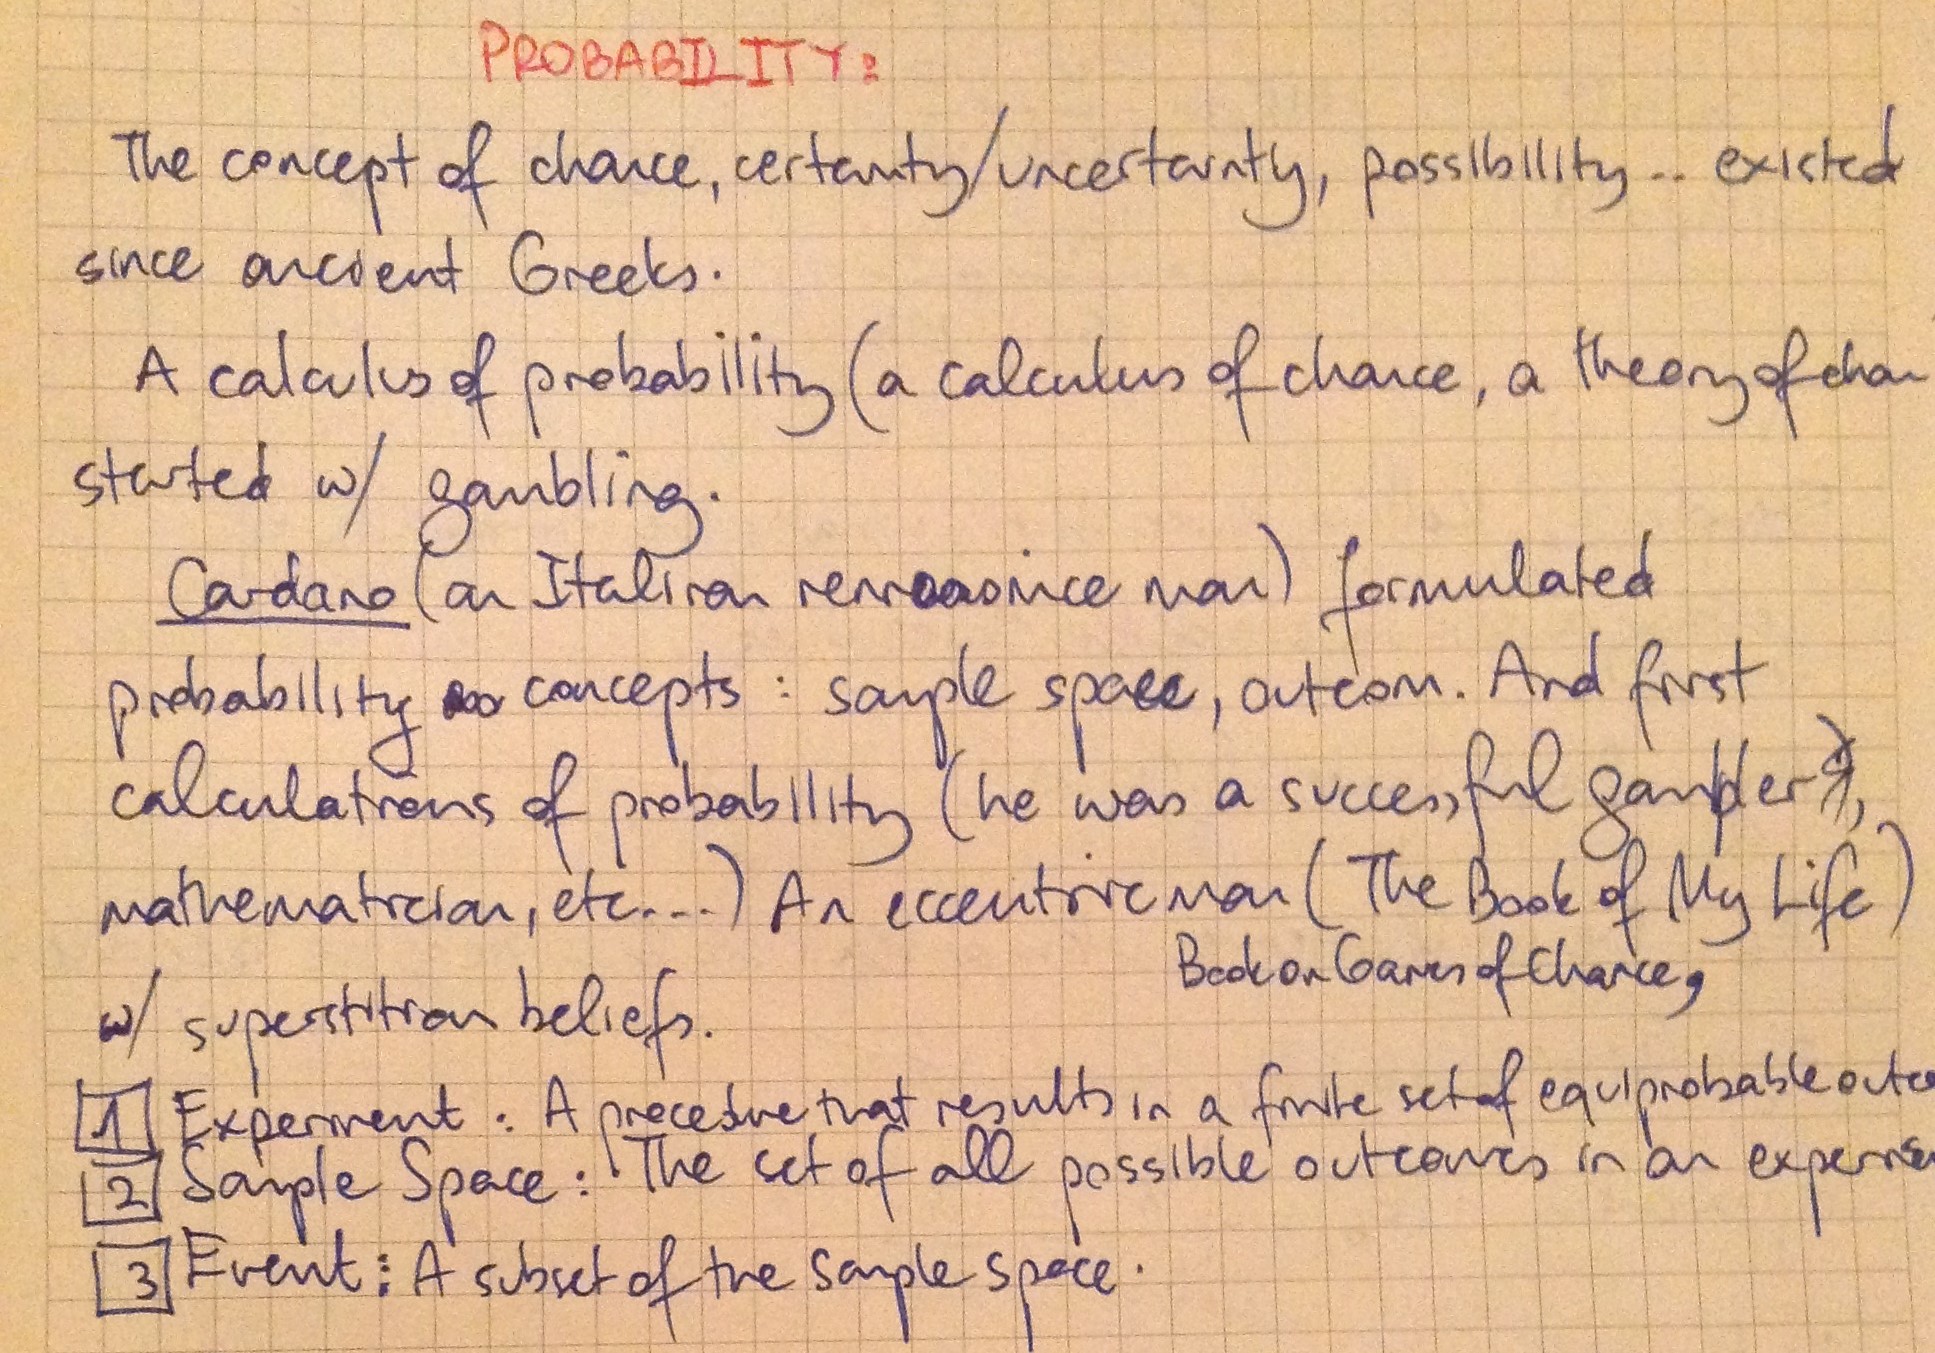 PROBABILITY:
The concept of chance, certainty/uncertainty, possibility.. existed
since ancient Greeks.
A calculus of probability (a calculus of chance, a theory of chan
started w/ gambling.
Cardano (an Italian man) formulated
probability concepts : sample space, outcom. And first
calculations of probability (he was a successful gambler),
mathematician, etc....) An eccentric man (The Book of My Life)
Book on Games of Chance,
w/ superstition beliefs.
1 Experiment : A procedure that results in a finite set of equiprobable outco
2 Sample Space : The set of all possible outcomes in an experime
3 Event : A subset of the sample space.